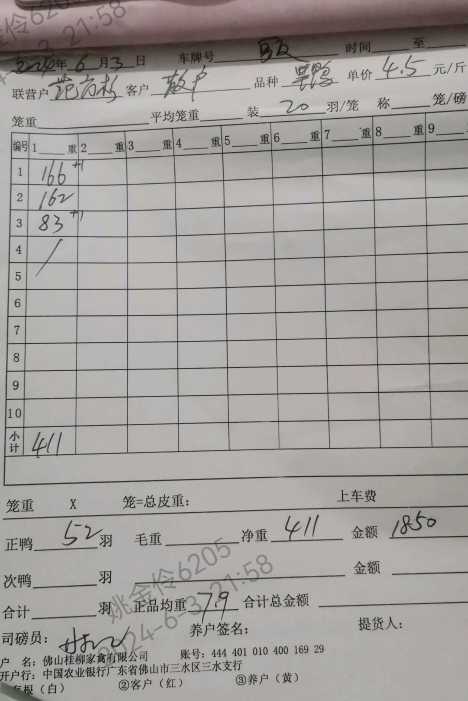 2024年6月3日 车牌号 时间 至
联营户 客户 散户 品种 单价 4.5 元/斤
笼重 平均笼重 装 20 羽/笼 称 笼/磅
编号 1 重 2 重 3 重 4 重 5 重 6 重 7 重 8 重 9
1 166 +1
2 162
3 83 +1
4
5
6
7
8
9
10
小计 411
笼重 X 笼=总皮重: 上车费
正鸭 52 羽 毛重 净重 411 金额 1850
次鸭 羽 金额
合计 羽 正品均重 7.9 合计总金额
司磅员: 养户签名: 提货人:
户 名: 佛山桂柳家禽有限公司 账号: 444 401 010 400 169 29
开户行: 中国农业银行广东省佛山市三水区三水支行
存根(白) ②客户(红) ③养户(黄)
姚金伶6205
2024-6-3 21:58